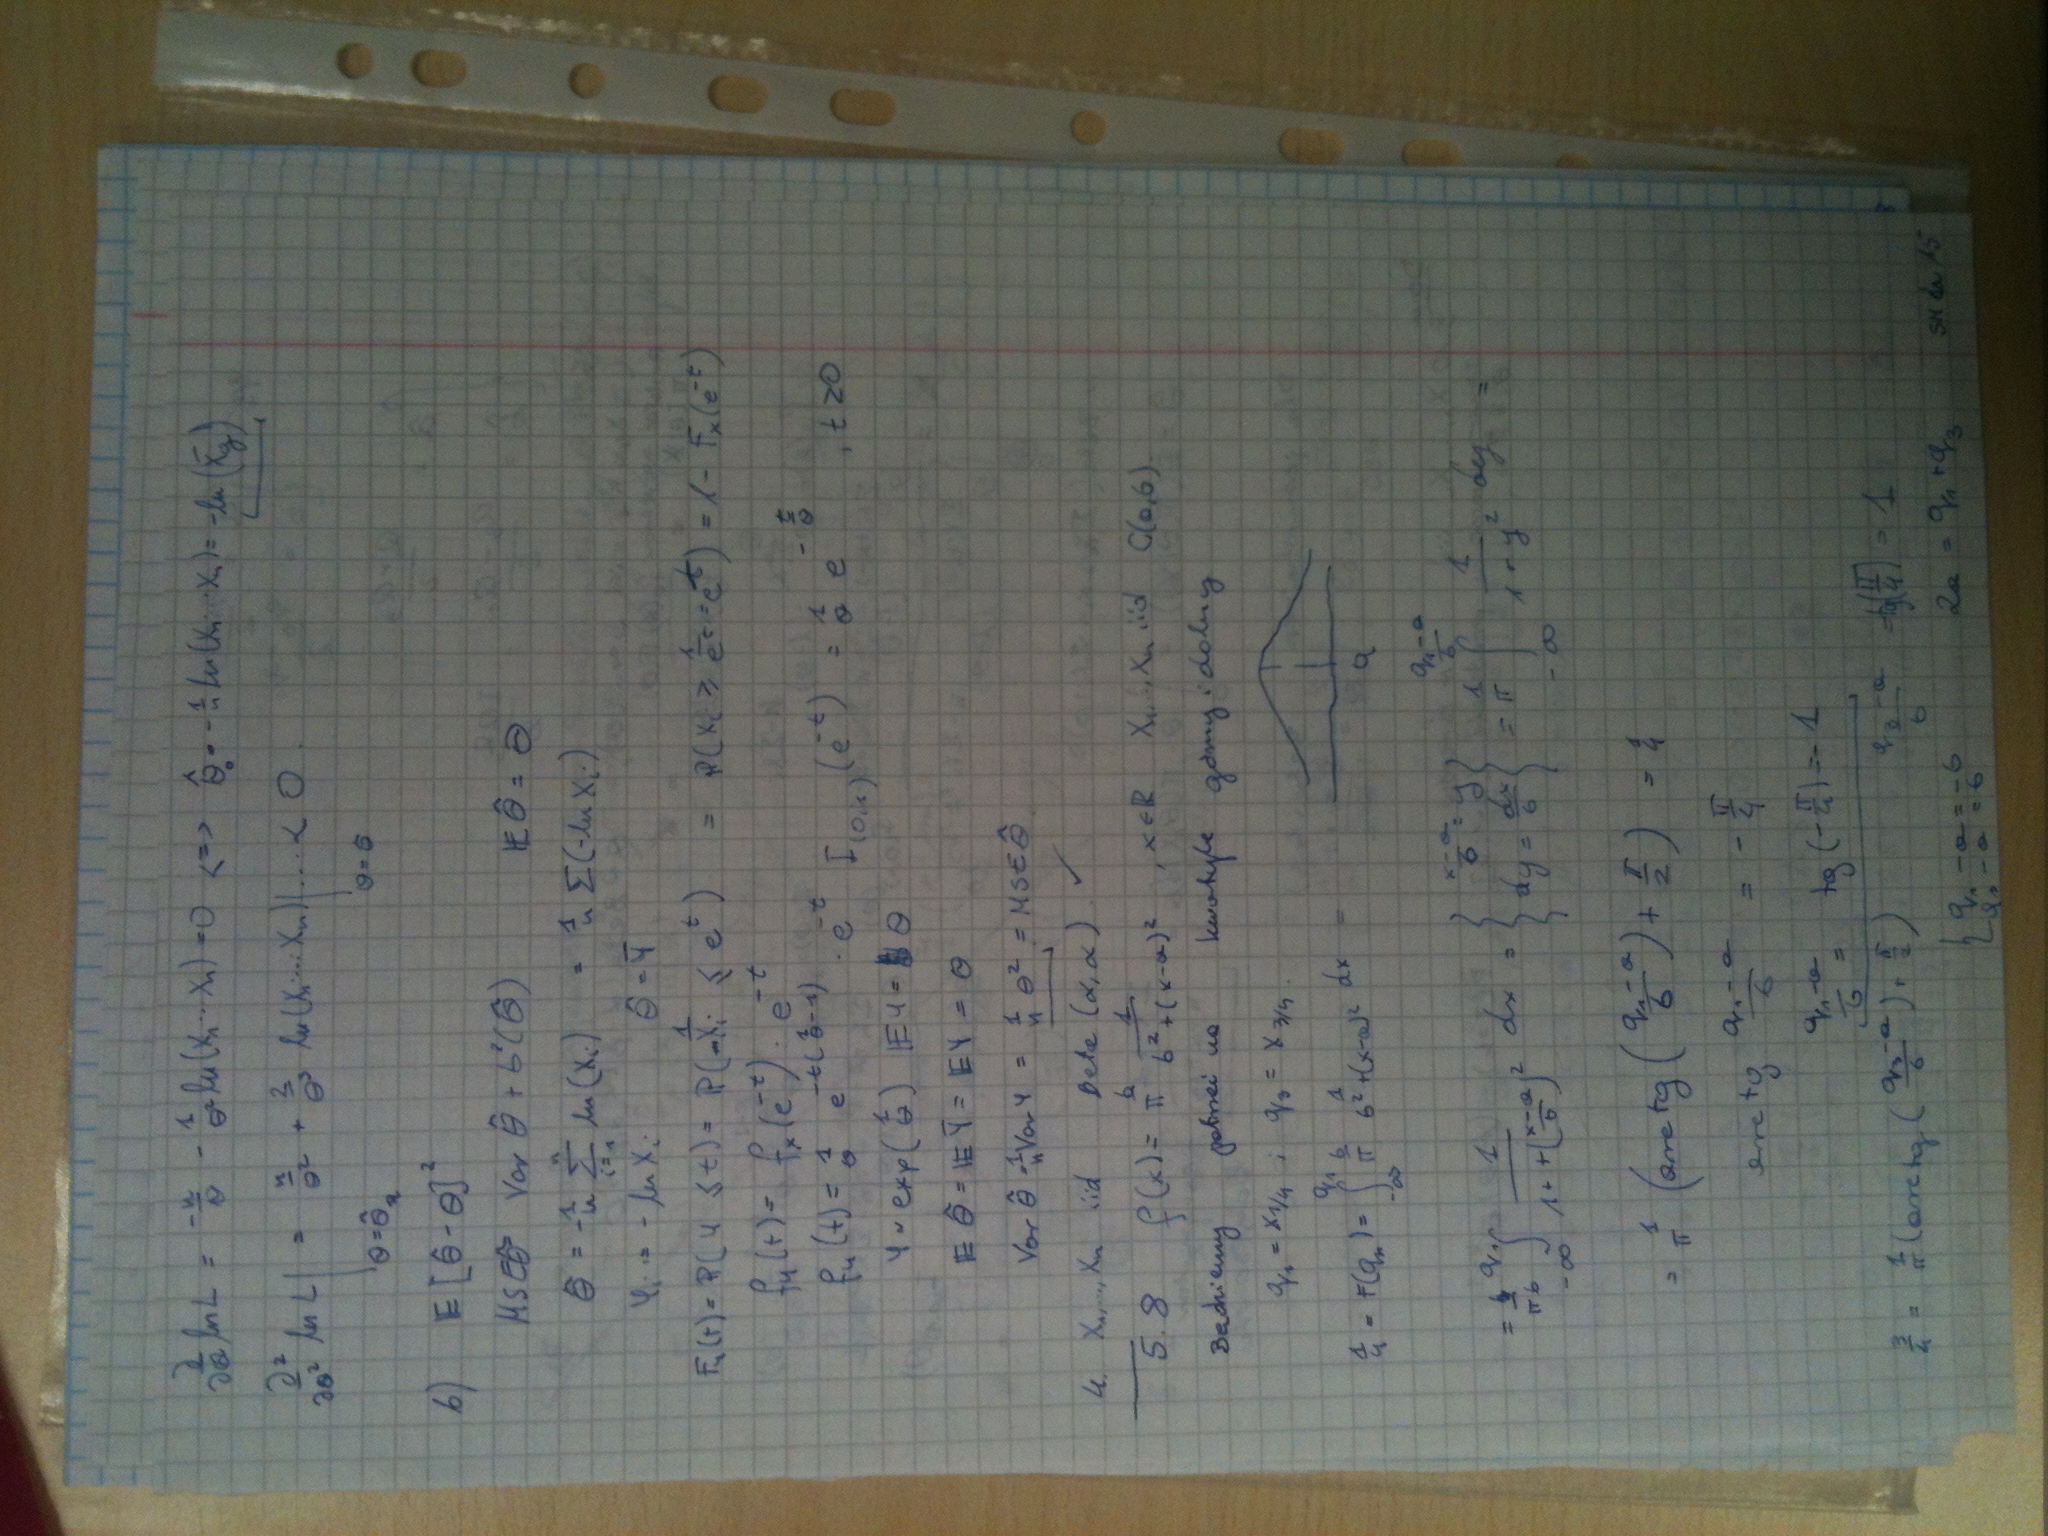 ∂/∂θ ln L = -n/θ - 1/θ² ln(X₁...Xₙ) = 0 <=> θ̂ = -1/n ln(X₁...Xₙ) = -ln(X̄g)
∂²/∂θ² ln L | θ=θ̂ = n/θ² + 2/θ³ ln(X₁...Xₙ) | θ=θ̂ ... < 0
b) E[θ̂ - θ]²
MSE θ̂ Var θ̂ + b²(θ̂) E θ̂ = θ
θ̂ = -1/n Σ_{i=1}^{n} ln(Xi) = 1/n Σ(-ln Xi)
Yi := -ln Xi θ̂ = Ȳ
F_Y(t) = P(Y ≤ t) = P(1/Xi ≤ e^t) = P(Xi ≥ 1/e^t = e^-t) = 1 - F_X(e^-t)
f_Y(t) = f_X(e^-t) · e^-t
f_Y(t) = 1/θ e^{-t(1/θ-1)} · e^-t I_(0,1)(e^-t) = 1/θ e^{-t/θ} , t ≥ 0
Y ~ exp(1/θ) EY = θ
E θ̂ = E Ȳ = EY = θ
Var θ̂ = 1/n Var Y = 1/n θ² = MSE θ̂
4. X₁,...,Xₙ iid Beta (α,α) ✓
5.8 f(x) = b/π 1/(b²+(x-a)²) , x∈R X₁,...,Xₙ iid C(a,b)
Będziemy patrzeć na kwartyle górny i dolny
q₁ = x_{1/4} ; q₃ = x_{3/4}.
1/4 = F(q₁) = ∫_{-∞}^{q₁} b/π 1/(b²+(x-a)²) dx =
a
= b/πb ∫_{-∞}^{q₁} 1/(1++((x-a)/b)²) dx = { (x-a)/b = y dy = dx/b } = 1/π ∫_{-∞}^{(q₁-a)/b} 1/(1+y²) dy =
= 1/π (arctg((q₁-a)/b) + π/2) = 1/4
arctg (q₁-a)/b = -π/4
(q₁-a)/b = tg(-π/4) = -1
3/4 = 1/π (arctg((q₃-a)/b) + π/2) (q₃-a)/b = tg(π/4) = 1
{ q₁ - a = -b 2a = q₁ + q₃
q₃ - a = b